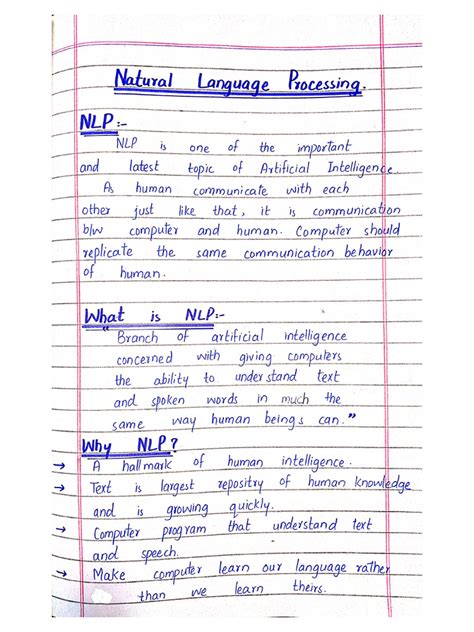 Natural Language Processing.
NLP :-
NLP is one of the important
and latest topic of Artificial Intelligence.
As human communicate with each
other just like that, it is communication
b/w computer and human. Computer should
replicate the same communication behavior
of human.
What is NLP:-
"Branch of artificial intelligence
concerned with giving computers
the ability to understand text
and spoken words in much the
same way human beings can."
Why NLP?
→ A hallmark of human intelligence.
→ Text is largest repositry of human knowledge
and is growing quickly.
→ Computer program that understand text
and speech.
→ Make computer learn our language rather
than we learn theirs.